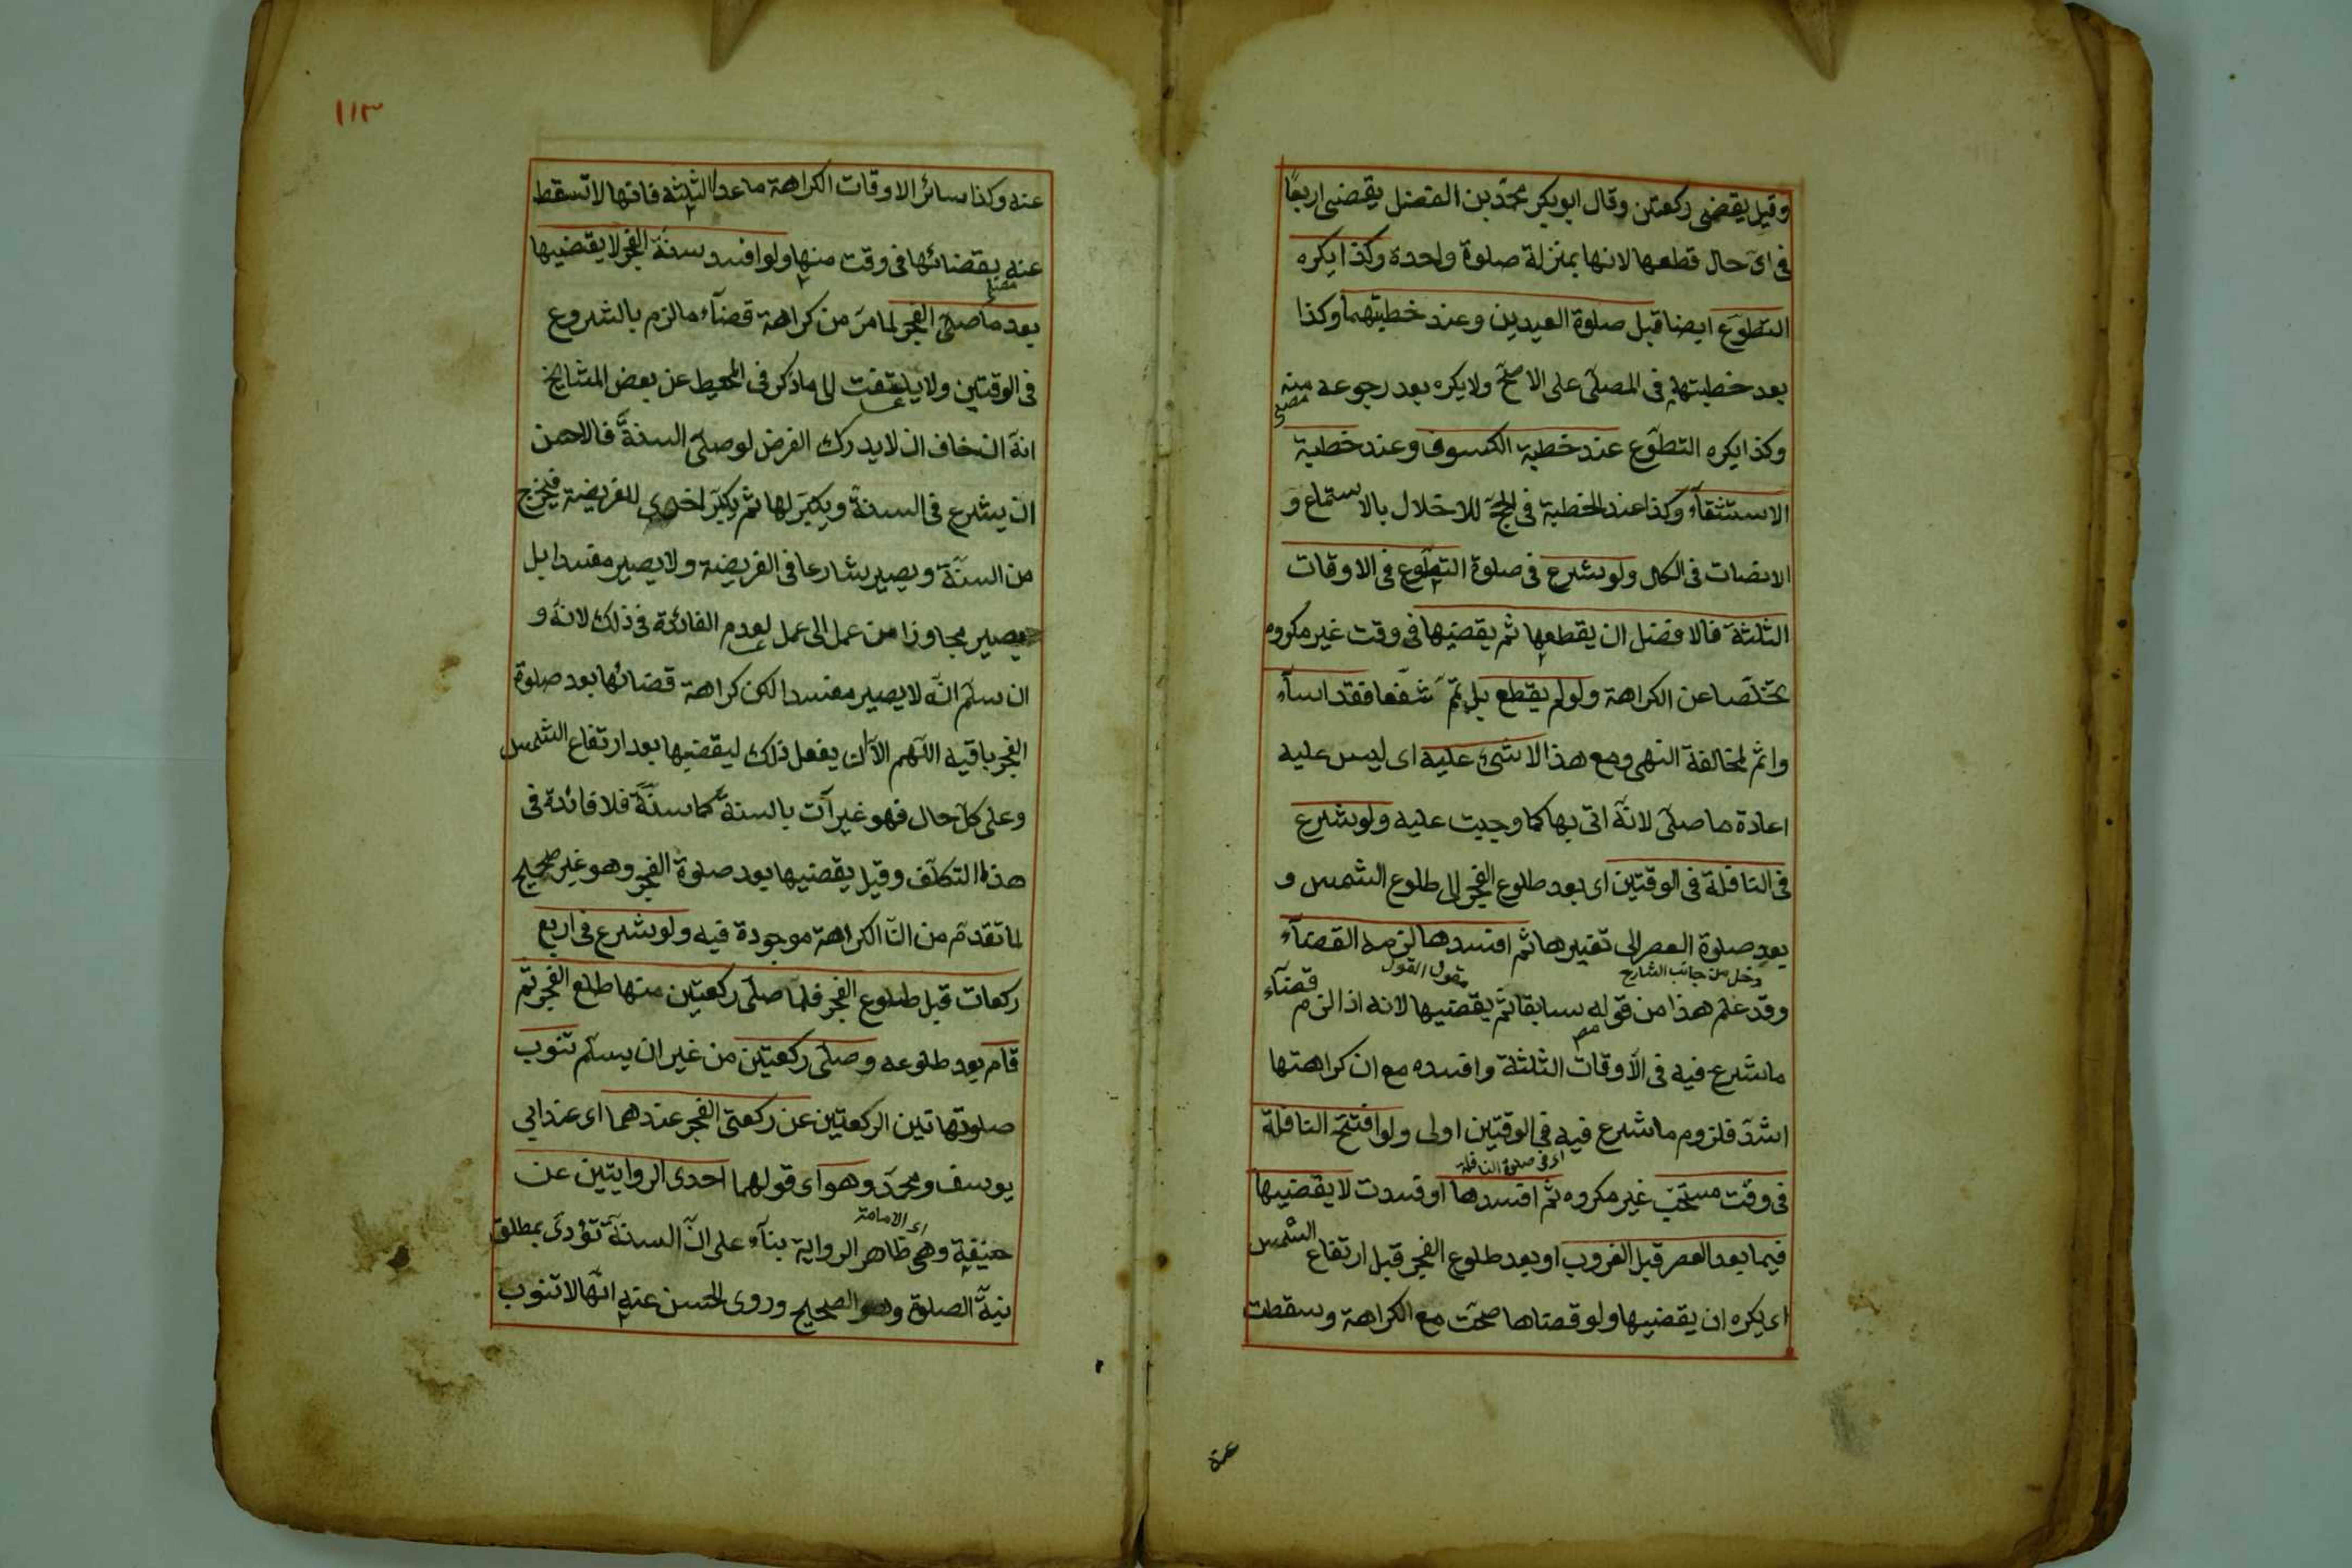 وقيل يقضى ركعتين وقال ابوبكر محمّد بن الفضل يقضى اربعًا
فى اىّ حال قطعها لانها بمنزلة صلوة واحدة وكذا يكره
التطوّع ايضا قبل صلوة العيدين وعند خطبتهما وكذا
بعد خطبتها فى المصلى على الاصحّ ولا يكره بعد رجوعه منه
وكذا يكره التطوّع عند خطبة الكسوف وعند خطبة
الاستسقآء وكذا عند الخطبة فى الحجّ للاخلال بالاستماع و
الانصات فى الكل ولو شرع فى صلوة التطوّع فى الاوقات
الثلثة فالافضل ان يقطعها ثم يقضيها فى وقت غير مكروه
تخلّصا عن الكراهة ولو لم يقطع بل تمّ شفعا فقد اسآء
واثم لمخالفة النهى ومع هذا لا شئ عليه اى ليس عليه
اعادة ما صلى لانّه اتى بها كما وجبت عليه ولو شرع
فى النافلة فى الوقتين اى بعد طلوع الفجر الى طلوع الشمس و
بعد صلوة العصر الى تغيرها ثم افسدها لزمه القضآء
دخل من جانب الشارح
مقول القول
وقد علم هذا من قوله سابقا ثم يقضيها لانه اذا لزم قضآء
ما شرع فيه فى الاوقات الثلثة وافسده مع ان كراهتها
اشدّ فلزوم ما شرع فيه فى الوقتين اولى ولو افتتح النافلة
اى فى صلوة النافلة
فى وقت مستحبّ غير مكروه ثم افسدها او فسدت لا يقضيها
فيما بعد العصر قبل الغروب او بعد طلوع الفجر قبل ارتفاع الشمس
اى يكره ان يقضيها ولو قضاها صحت مع الكراهة وسقطت
عنه
١١٣
عنه وكذا سائر الاوقات الكراهة ما عدا الثلثة فانها لا تسقط
عنه بقضائها فى وقت منها ولو افسد سنّة الفجر لا يقضيها
بعد ما صلى الفجر لما مرّ من كراهة قضآء ما لزم بالشروع
فى الوقتين ولا يلتفت الى ما ذكر فى المحيط عن بعض المشايخ
انه ان خاف ان لا يدرك الفرض لو صلى السنة فالاحسن
ان يشرع فى السنة ويكبّر لها ثم يكبّر اخرى للفريضة فيخرج
من السنّة ويصير شارعا فى الفريضة ولا يصير مفسدا بل
يصير مجاوزا من عمل الى عمل لعدم الفائدة فى ذلك لانه و
ان سلّم انّه لا يصير مفسدا لكن كراهة قضائها بعد صلوة
الفجر باقية اللّهم الّا ان يفعل ذلك ليقضيها بعد ارتفاع الشمس
وعلى كلّ حال فهو غير آت بالسنة كما سنّة فلا فائدة فى
هذا التكلّف وقيل يقضيها بعد صلوة الفجر وهو غير صحيح
لما تقدّم من انّ الكراهة موجودة فيه ولو شرع فى اربع
ركعات قبل طلوع الفجر فلمّا صلى ركعتين منها طلع الفجر ثم
قام بعد طلوعه وصلى ركعتين من غير ان يسلّم تنوب
صلوة هاتين الركعتين عن ركعتى الفجر عندهما اى عند ابى
يوسف ومحمد وهو اى قولهما احدى الروايتين عن
اى الامامة
حنيفة وهى ظاهر الرواية بنآء على انّ السنّة تؤدى بمطلق
نيّة الصلوة وهو الصحيح وروى الحسن عنه انّها لا تنوب